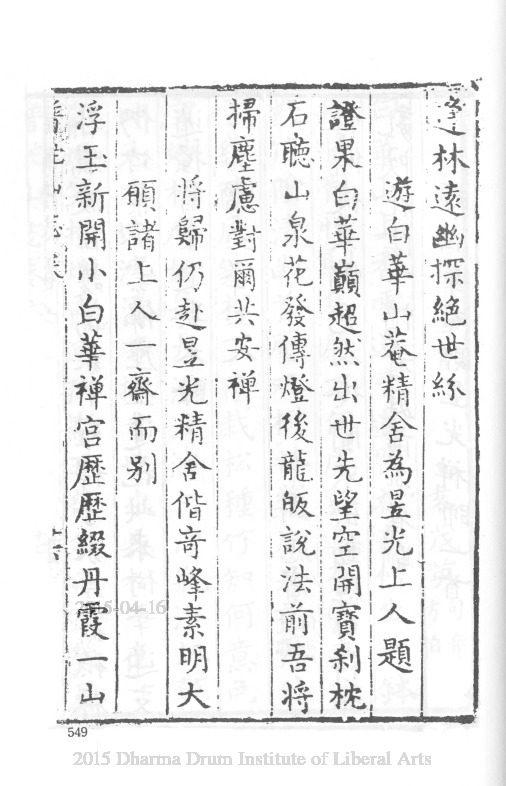 林遠幽探絕世紛
遊白華山菴精舍為昱光上人題
證果白華巔超然出世先望空開寶剎枕
石聽山泉花發傳燈後龍皈說法前吾將
掃塵慮對爾共安禪
將歸仍赴昱光精舍偕奇峰素明大
碩諸上人一齋而別
浮玉新開小白華禅宫歷歷綴丹霞一山
549
2015 Dharma Drum Institute of Liberal Arts